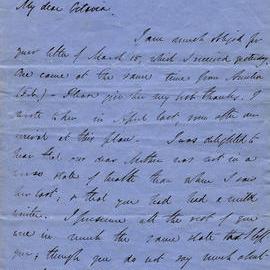 My dear Octavia
I am much obliged for
your letter of March 15, which I received yesterday.
One came at the same time from Amelia
Please give her my best thanks. I
wrote to her in April last soon after our
arrival at this place. I was delighted to
hear that our dear Mother was not in a
worse state of health than when I saw
her last; & that you had had a mild
winter. I presume all the rest of you
are in much the same state that I left
you; though you do not say much about